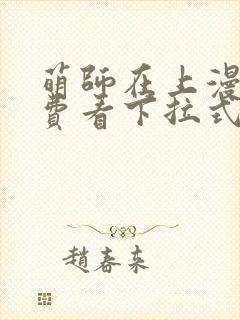 萌師在上漫
費看下拉式
趙春来